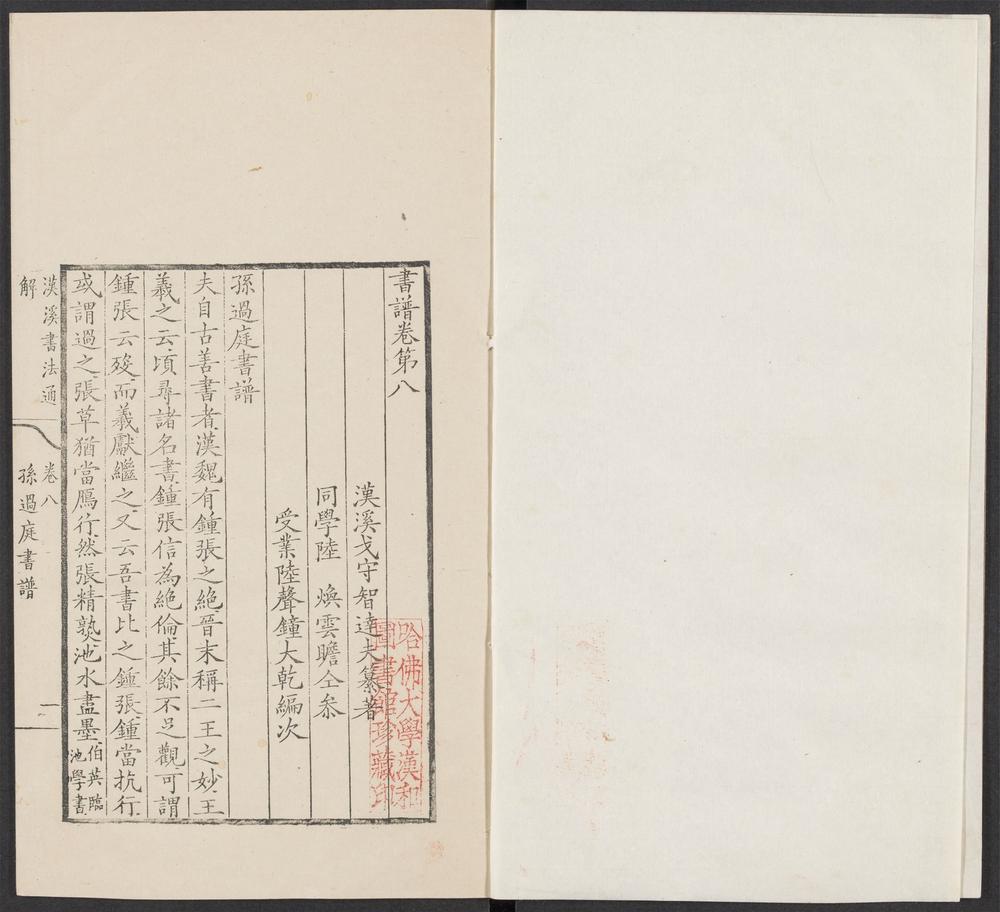 書譜卷第八
漢溪戈守智達夫纂著
同學陸　煥雲瞻仝叅
受業陸聲鐘大乾編次
孫過庭書譜
夫自古善書者漢魏有鍾張之絶晉末稱二王之妙王
羲之云頃尋諸名書鍾張信為絶倫其餘不足觀可謂
鍾張云歿而羲獻繼之又云吾書比之鍾張鍾當抗行
或謂過之張草猶當鴈行然張精熟池水盡墨伯英臨
池學書
漢溪書法通
解
卷八
孫過庭書譜
一
哈佛大學漢和
圖書館珍藏印